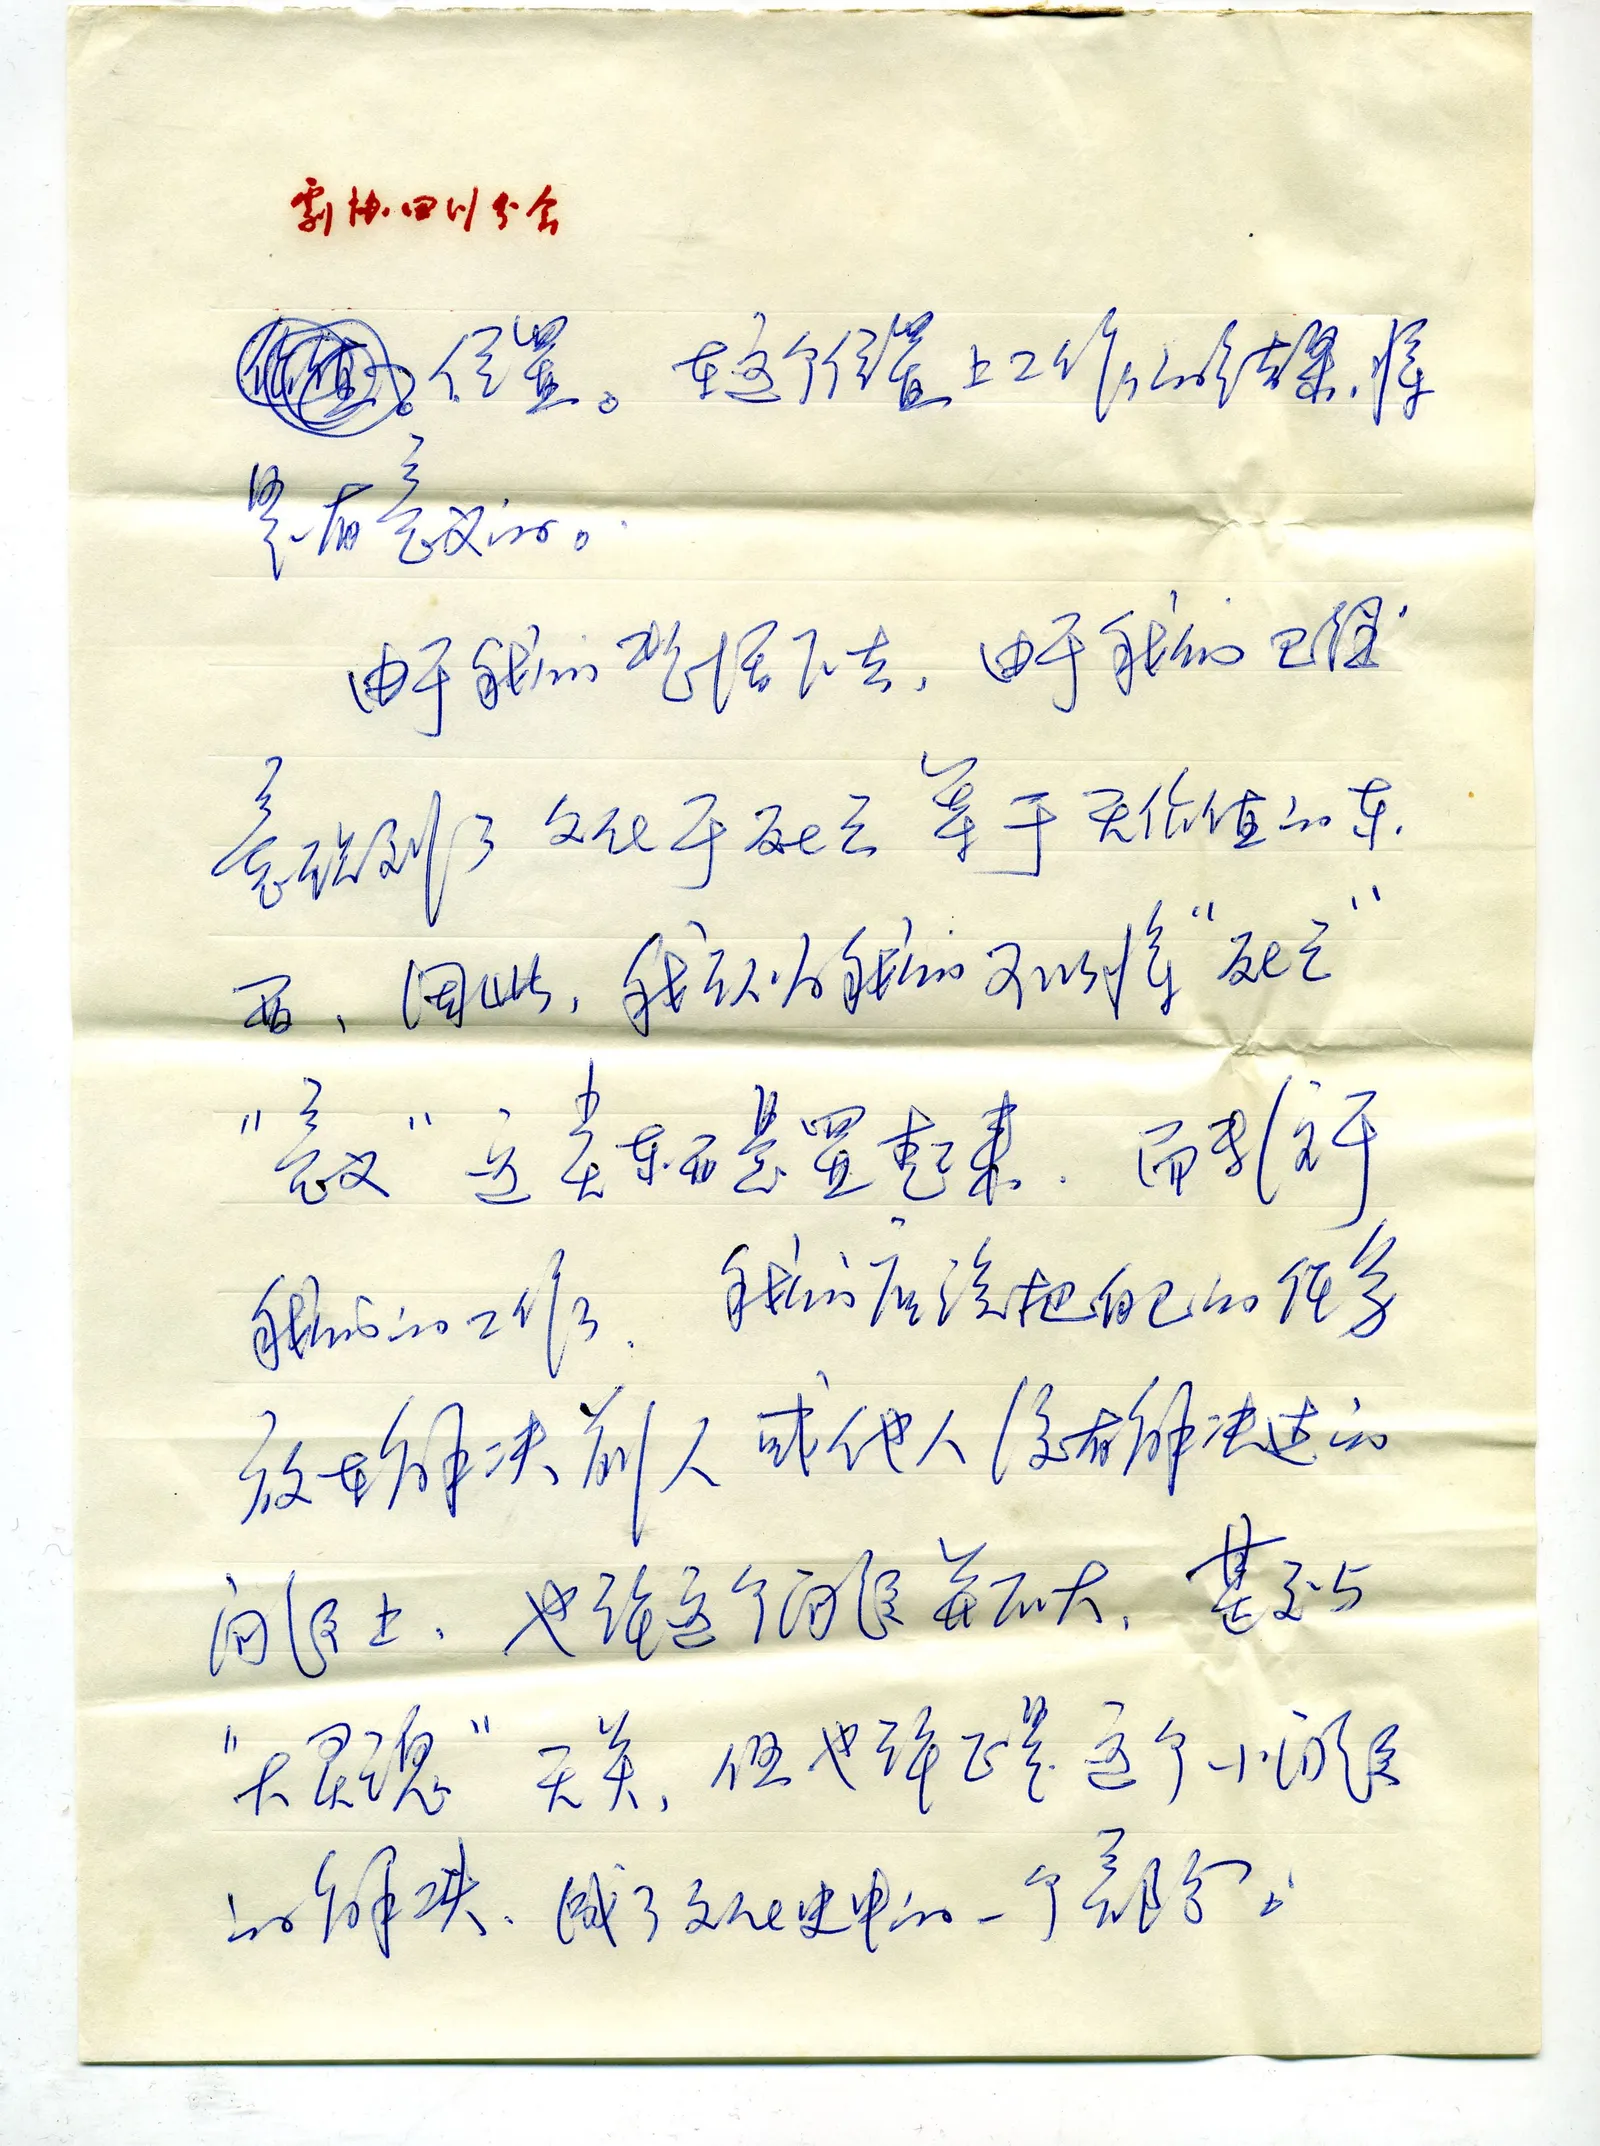 剧协四川分会
位置。在这个位置上工作的结果，将
是有意义的。
由于我们要活下去，由于我们已经
意识到了文化于死亡等于无价值的东
西，因此，我认为我们可以将“死亡”
“意义”这类东西悬置起来，而专注于
我们的工作了。我们应该把自己的任务
放在解决前人或他人没有解决过的
问题上，也许这个问题并不大，甚至与
“大灵魂”无关，但也许正是这个小问题
的解决，成了文化史中的一个部分。